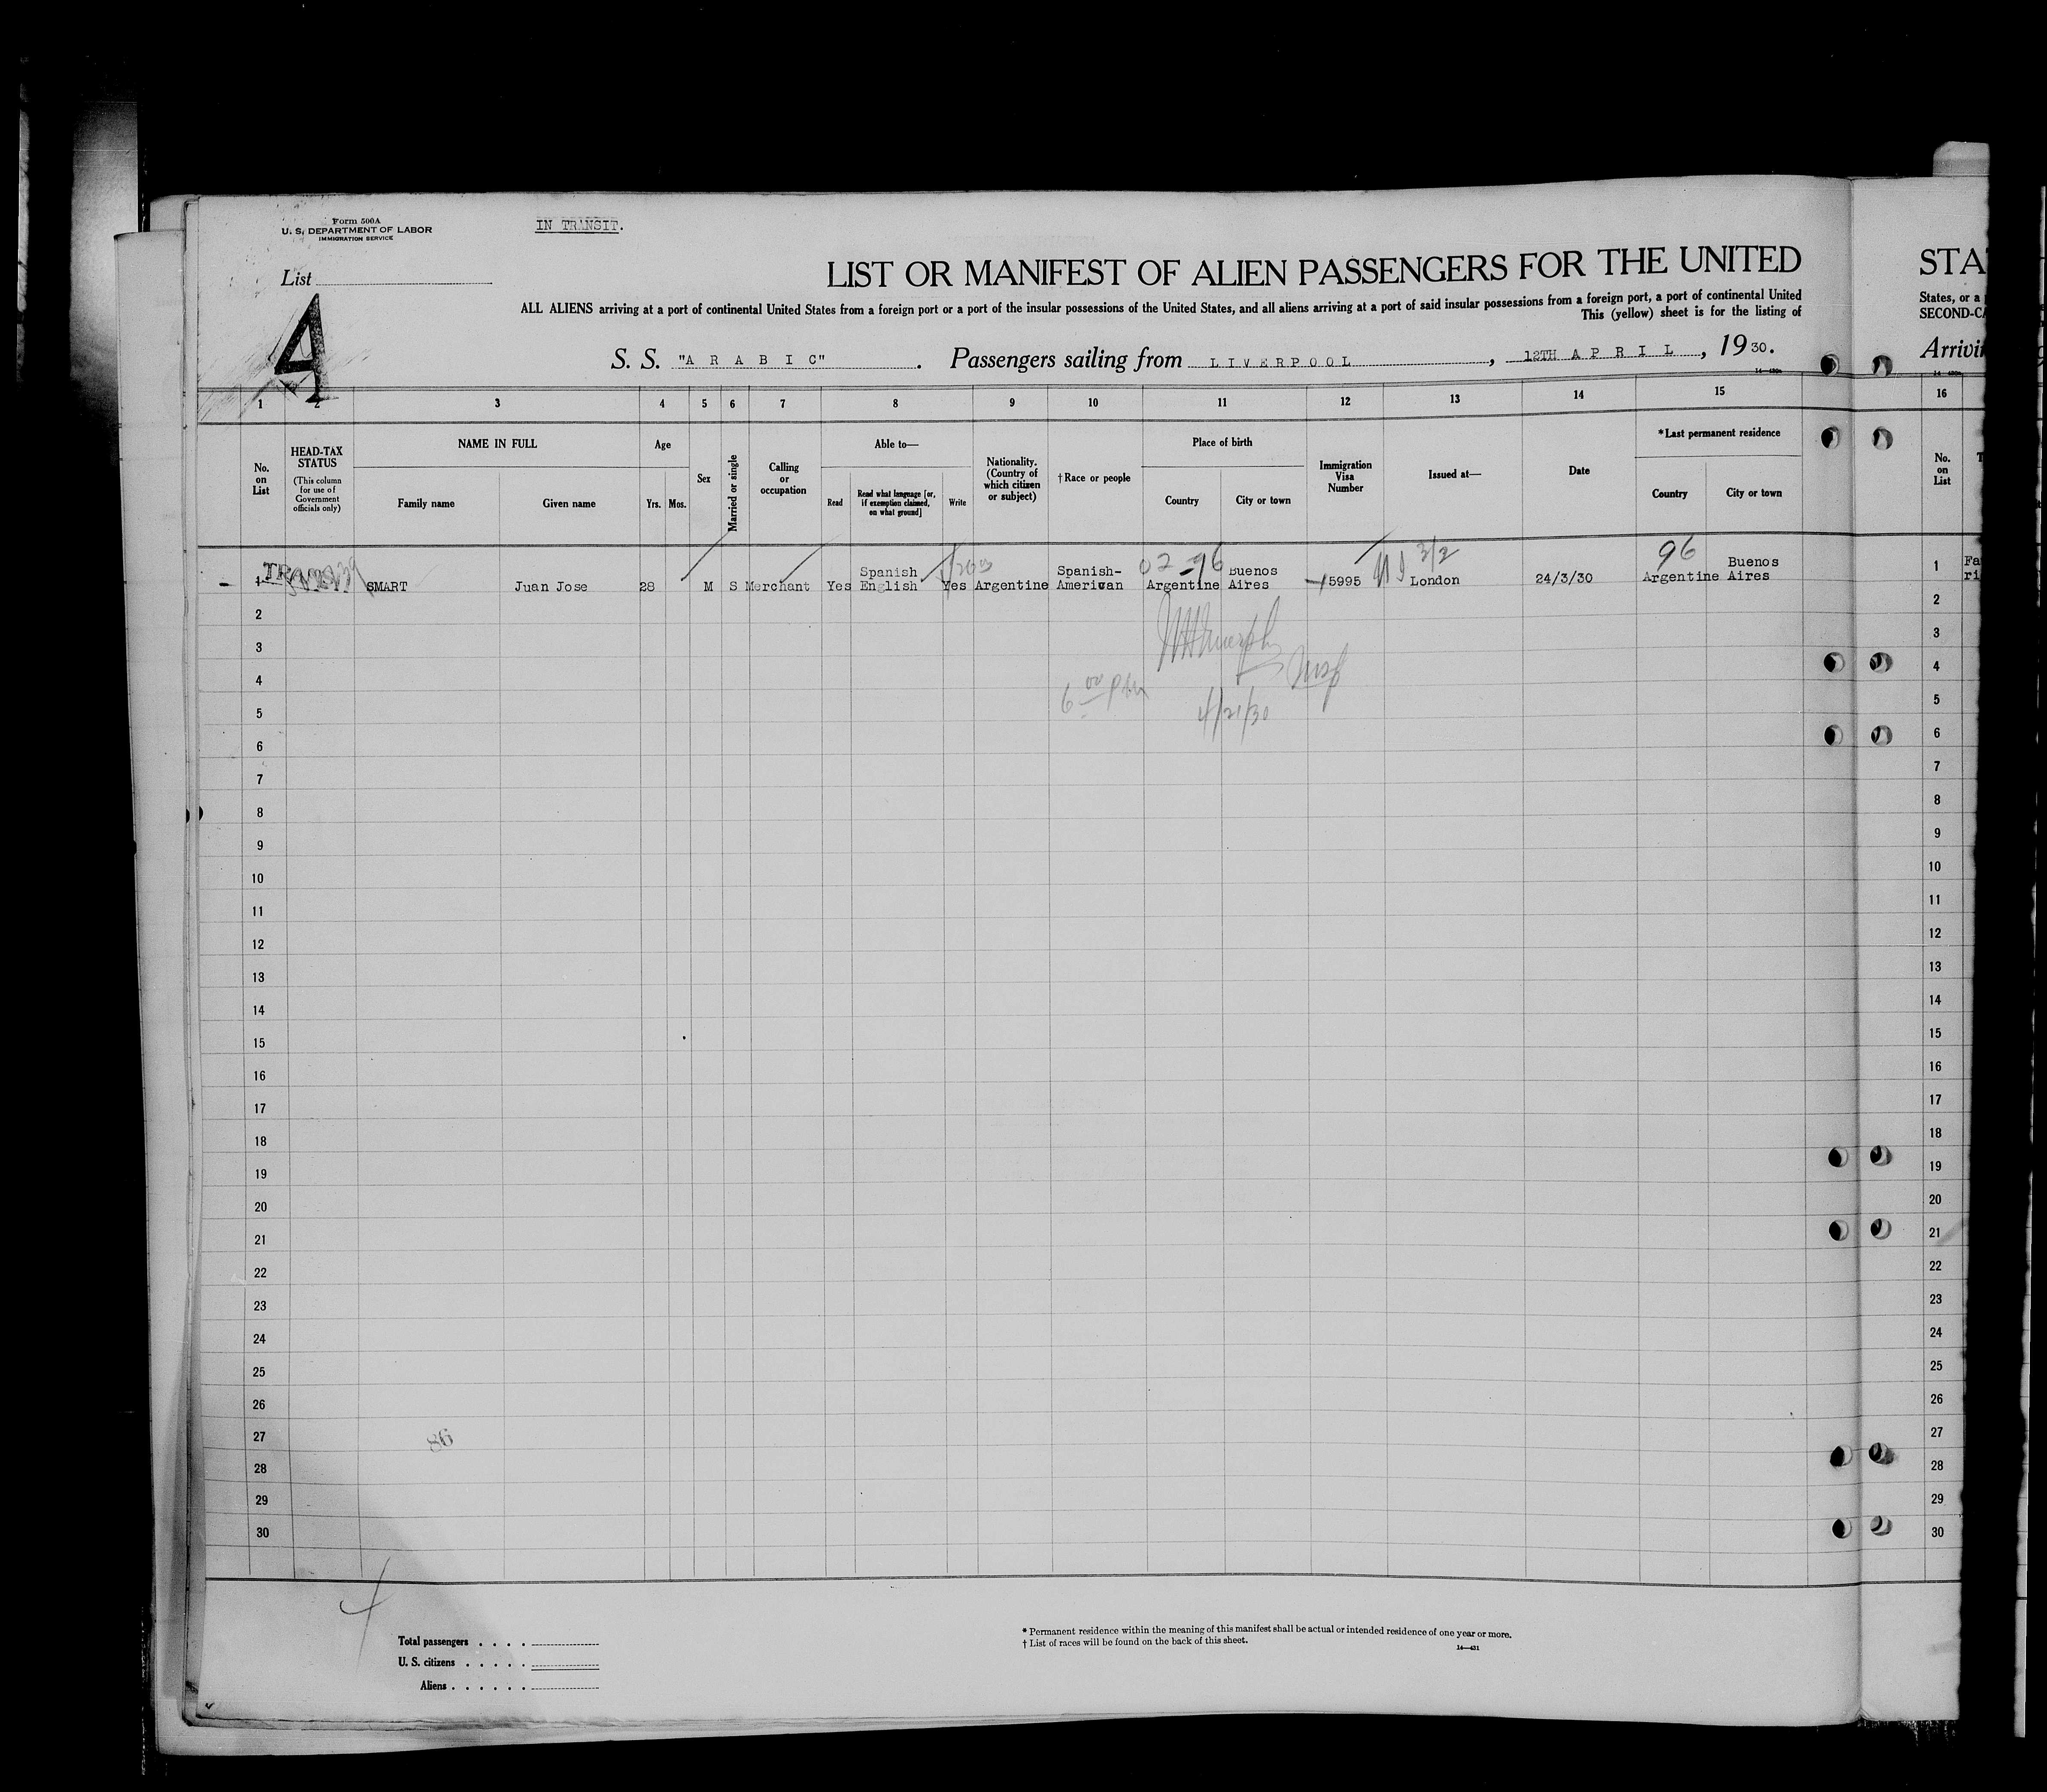 Form 500A
U. S. DEPARTMENT OF LABOR
IMMIGRATION SERVICE
IN TRANSIT.
List
4
LIST OR MANIFEST OF ALIEN PASSENGERS FOR THE UNITED
STA
ALL ALIENS arriving at a port of continental United States from a foreign port or a port of the insular possessions of the United States, and all aliens arriving at a port of said insular possessions from a foreign port, a port of continental United
States, or a
This (yellow) sheet is for the listing of
SECOND-CA
S. S. "A R A B I C". Passengers sailing from L I V E R P O O L, 12TH A P R I L, 1930.
Arrivin
1 2 3 4 5 6 7 8 9 10 11 12 13 14 15 16
No. on List
HEAD-TAX STATUS
(This column for use of Government officials only)
NAME IN FULL
Family name
Given name
Age
Yrs. Mos.
Sex
Married or single
Calling or occupation
Able to—
Read
Read what language [or, if exemption claimed, on what ground]
Write
Nationality. (Country of which citizen or subject)
† Race or people
Place of birth
Country
City or town
Immigration Visa Number
Issued at—
Date
*Last permanent residence
Country
City or town
No. on List
02-96
3/2
96
1 SMART Juan Jose 28 M S Merchant Yes Spanish English Yes Argentine Spanish-Ameriwan Argentine Buenos Aires 5995 London 24/3/30 Argentine Buenos Aires
1 Fa
ri
2 2
3 3
4 4
6 00 PM
4/21/30
5 5
6 6
7 7
8 8
9 9
10 10
11 11
12 12
13 13
14 14
15 15
16 16
17 17
18 18
19 19
20 20
21 21
22 22
23 23
24 24
25 25
26 26
27 27
86
28 28
29 29
30 30
4
Total passengers
U. S. citizens
Aliens
* Permanent residence within the meaning of this manifest shall be actual or intended residence of one year or more.
† List of races will be found on the back of this sheet.
14—431